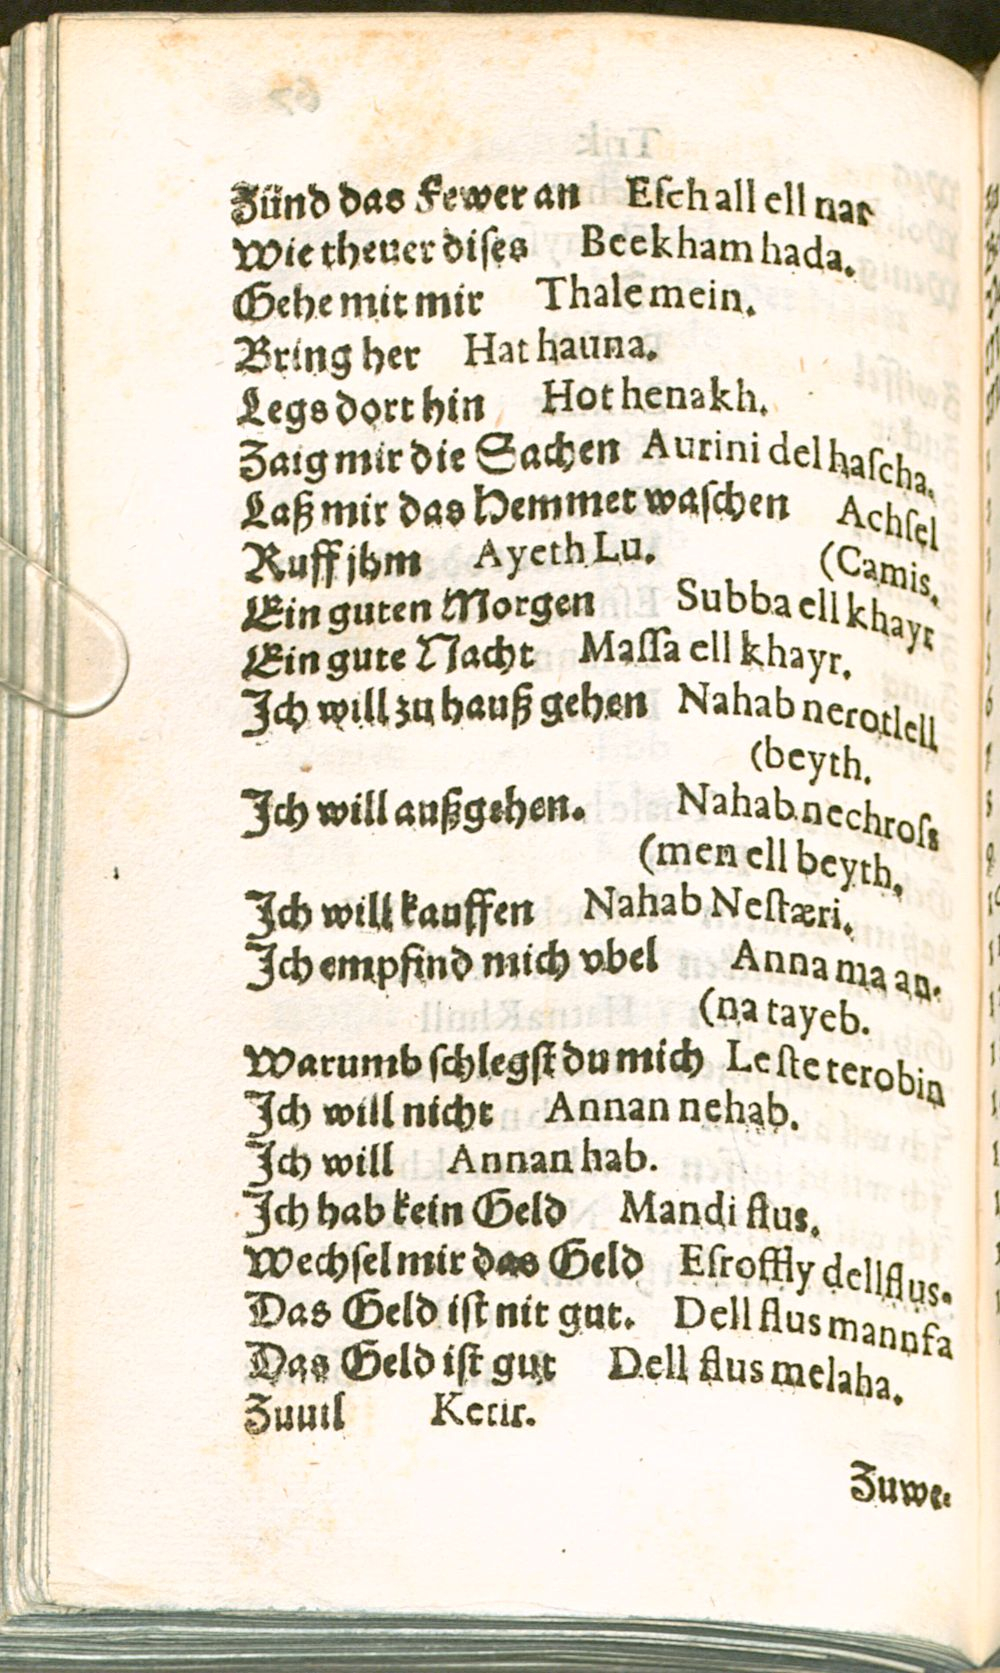 Zünd das Fewer an Eſch all ell nar
Wie theuer diſes Beekham hada.
Gehe mit mir Thale mein.
Bring her Hat hauna.
Legs dort hin Hot henakh.
Zaig mir die Sachen Aurini del haſcha.
Laß mir das Hemmet waſchen Achſel
Ruff jhm Ayeth Lu. (Camis.
Ein guten Morgen Subba ell khayr
Ein gute Nacht Maſſa ell khayr.
Ich will zu hauß gehen Nahab nerotlell
(beyth.
Ich will außgehen. Nahab nechroſs
(men ell beyth.
Ich will kauffen Nahab Neſtæri.
Ich empfind mich vbel Anna ma an-
(na tayeb.
Warumb ſchlegſt du mich Le ſte terobin
Ich will nicht Annan nehab.
Ich will Annan hab.
Ich hab kein Geld Mandi flus.
Wechſel mir das Geld Eſroffly dellflus.
Das Geld iſt nit gut. Dell flus mannfa
Das Geld iſt gut Dell flus melaha.
Zuuil Ketir.
Zuwe-